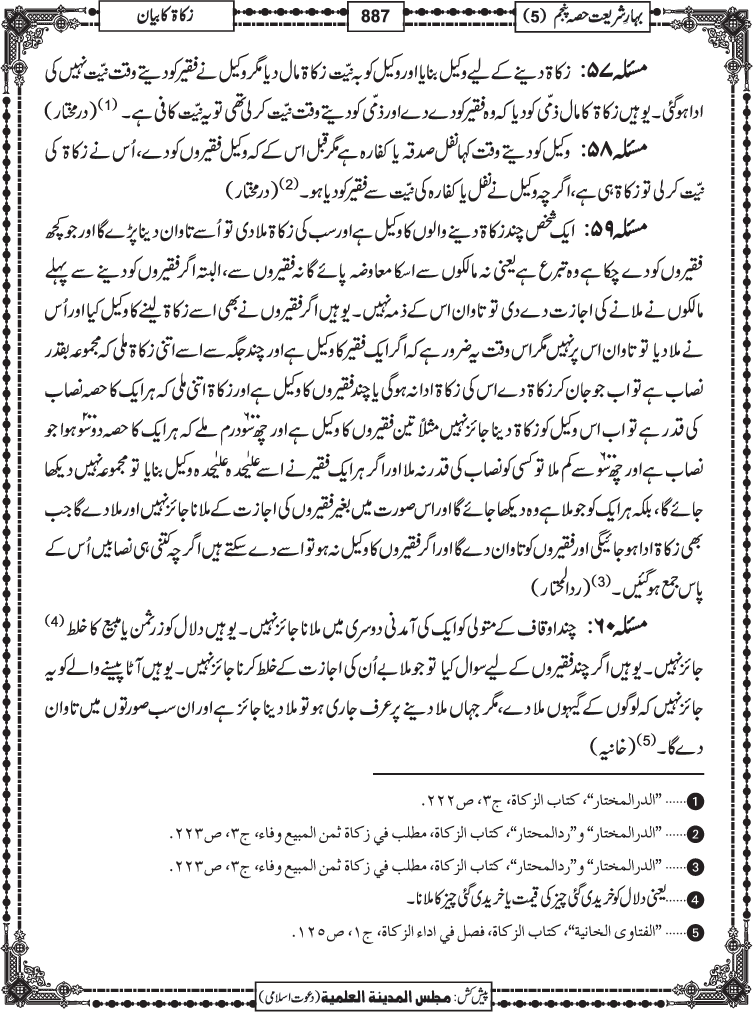 بہارِ شریعت حصہ پنجم (5)
887
زکاۃ کا بیان
مسئلہ ۵۷: زکاۃ دینے کے لیے وکیل بنایا اور وکیل کو بہ نیّت زکاۃ مال دیا مگر وکیل نے فقیر کو دیتے وقت نیّت نہیں کی
ادا ہوگئی۔ یوہیں زکاۃ کا مال ذمّی کو دیا کہ وہ فقیر کو دے دے اور ذمّی کو دیتے وقت نیّت کر لی تھی تو یہ نیّت کافی ہے۔ (1) (درمختار)
مسئلہ ۵۸: وکیل کو دیتے وقت کہا نفل صدقہ یا کفارہ ہے مگر قبل اس کے کہ وکیل فقیروں کو دے، اُس نے زکاۃ کی
نیّت کر لی تو زکاۃ ہی ہے، اگرچہ وکیل نے نفل یا کفارہ کی نیّت سے فقیر کو دیا ہو۔ (2) (درمختار)
مسئلہ ۵۹: ایک شخص چند زکاۃ دینے والوں کا وکیل ہے اور سب کی زکاۃ ملا دی تو اُسے تاوان دینا پڑے گا اور جو کچھ
فقیروں کو دے چکا ہے وہ تبرع ہے یعنی نہ مالکوں سے اسکا معاوضہ پائے گا نہ فقیروں سے، البتہ اگر فقیروں کو دینے سے پہلے
مالکوں نے ملانے کی اجازت دے دی تو تاوان اس کے ذمہ نہیں۔ یوہیں اگر فقیروں نے بھی اسے زکاۃ لینے کا وکیل کیا اور اُس
نے ملا دیا تو تاوان اس پر نہیں مگر اس وقت یہ ضرور ہے کہ اگر ایک فقیر کا وکیل ہے اور چند جگہ سے اسے اتنی زکاۃ ملی کہ مجموعہ بقدر
نصاب ہے تو اب جو جان کر زکاۃ دے اس کی زکاۃ ادا نہ ہوگی یا چند فقیروں کا وکیل ہے اور زکاۃ اتنی ملی کہ ہر ایک کا حصہ نصاب
کی قدر ہے تو اب اس وکیل کو زکاۃ دینا جائز نہیں مثلاً تین فقیروں کا وکیل ہے اور چھ سو۶۰۰ درم ملے کہ ہر ایک کا حصہ دو سو۲۰۰ ہوا جو
نصاب ہے اور چھ سو۶۰۰ سے کم ملا تو کسی کو نصاب کی قدر نہ ملا اور اگر ہر ایک فقیر نے اسے علیٰحدہ علیٰحدہ وکیل بنایا تو مجموعہ نہیں دیکھا
جائے گا، بلکہ ہر ایک کو جو ملا ہے وہ دیکھا جائے گا اور اس صورت میں بغیر فقیروں کی اجازت کے ملانا جائز نہیں اور ملا دے گا جب
بھی زکاۃ ادا ہو جائیگی اور فقیروں کو تاوان دے گا اور اگر فقیروں کا وکیل نہ ہو تو اسے دے سکتے ہیں اگرچہ کتنی ہی نصابیں اُس کے
پاس جمع ہوگئیں۔ (3) (ردالمحتار)
مسئلہ ۶۰: چند اوقاف کے متولی کو ایک کی آمدنی دوسری میں ملانا جائز نہیں۔ یوہیں دلال کو زرِ ثمن یا مبیع کا خلط (4)
جائز نہیں۔ یوہیں اگر چند فقیروں کے لیے سوال کیا تو جو ملا بے اُن کی اجازت کے خلط کرنا جائز نہیں۔ یوہیں آٹا پیسنے والے کو یہ
جائز نہیں کہ لوگوں کے گیہوں ملا دے، مگر جہاں ملا دینے پر عرف جاری ہو تو ملا دینا جائز ہے اور ان سب صورتوں میں تاوان
دے گا۔ (5) (خانیہ)
1 ...... "الدرالمختار"، كتاب الزكاة، ج٣، ص٢٢٢.
2 ...... "الدرالمختار" و"ردالمحتار"، كتاب الزكاة، مطلب في زكاة ثمن المبيع وفاء، ج٣، ص٢٢٣.
3 ...... "الدرالمختار" و"ردالمحتار"، كتاب الزكاة، مطلب في زكاة ثمن المبيع وفاء، ج٣، ص٢٢٣.
4 ...... یعنی دلال کو خریدی گئی چیز کی قیمت یا خریدی گئی چیز کا ملانا۔
5 ...... "الفتاوى الخانية"، كتاب الزكاة، فصل في اداء الزكاة، ج١، ص١٢٥.
پیش کش: مجلس المدینۃ العلمیۃ (دعوت اسلامی)